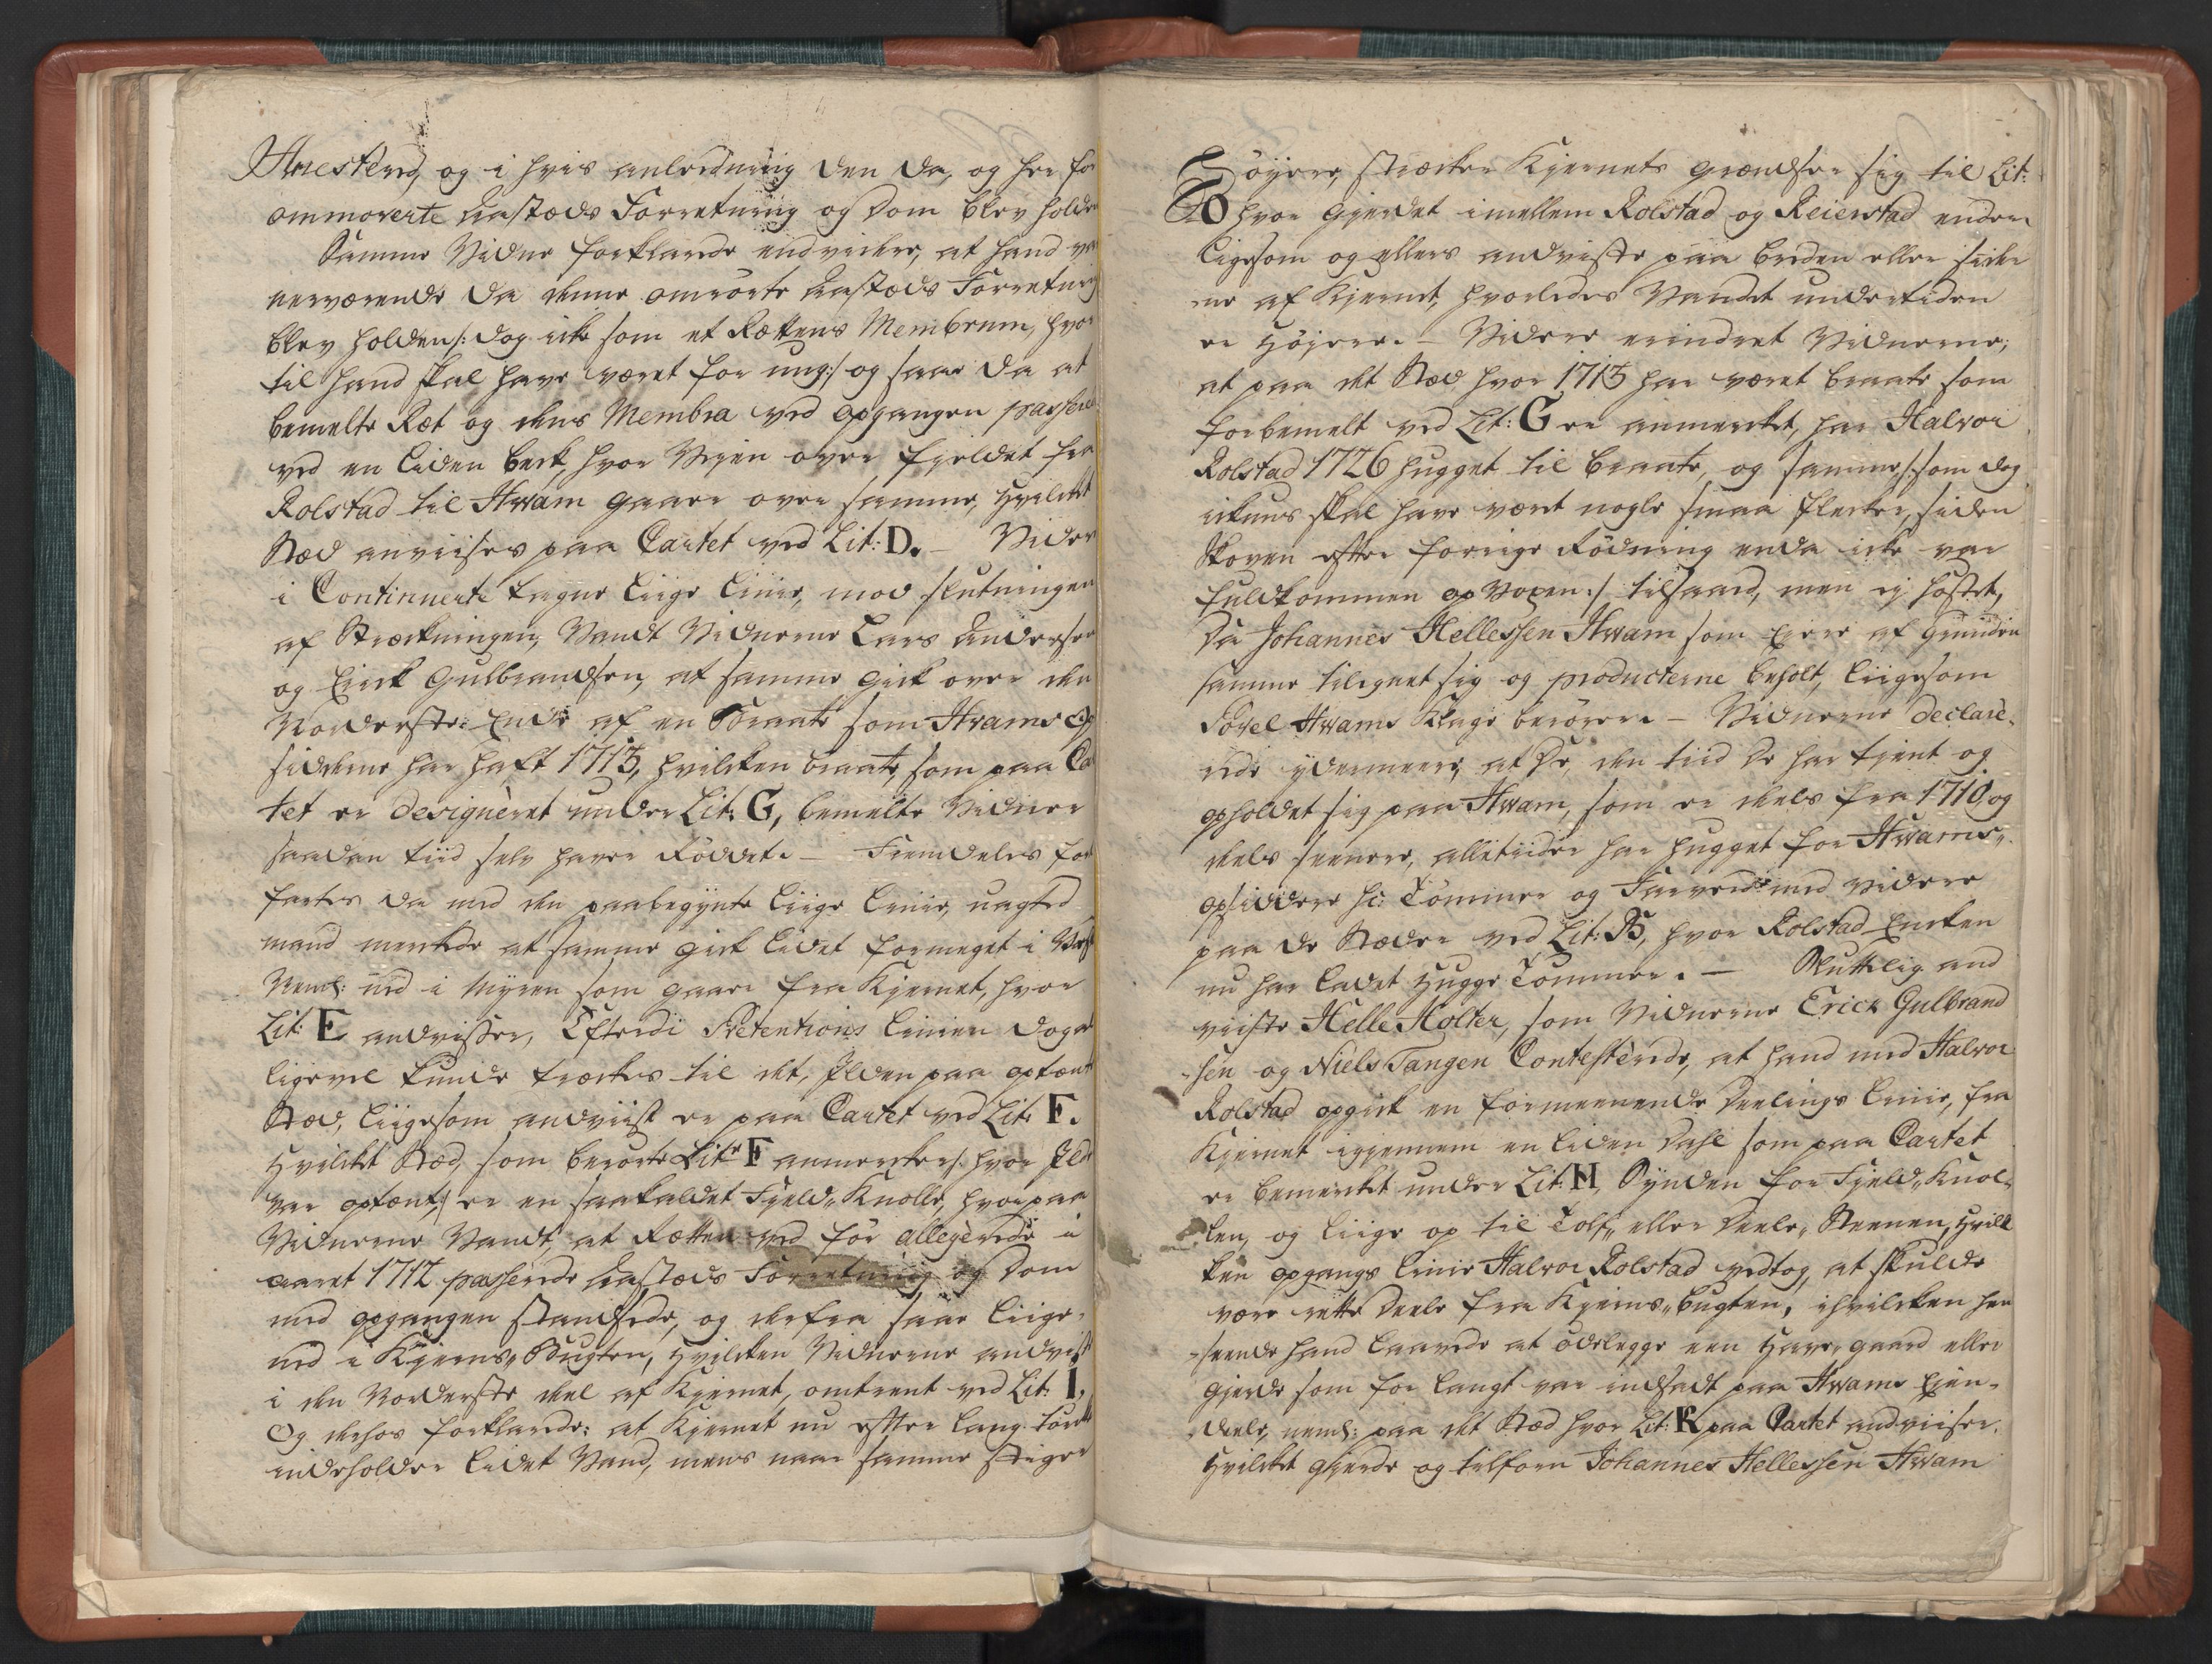 Arresterd, og i hvis anledning den da, og her for
ommorerte Aastæds Forretning og Dom blev holden
Samme Vidne forklarede endvidere, at hand var
nerværende da denne omrørte Aastæds Forretning
blev holden /: dog icke som et Rættens Membrum, hvor
til hand skal have været for ung :/ og saae da at
bemelte Ræt og dens Membra ved opgangen passered
ved en liden beck, hvor Vejen over fieldet fra
Rolstad til Hwam gaaer over samme, hvilcket
Stæd anviises paa Cartet ved Lit: D. – Vider
i Continuerte liige linie, mod slutningen
af Stræckningen, Vandt Vidnerne Lars Andersen
og Erick Gulbrandsen, at samme gick over den
Norderste Ende af en Braate som Hvams Op
sidderne har haft 1713, hvilcken braate, som paa Car
tet er designeret under Lit: G, bemelte Vidner
saadan tiid selv haver Røddet. – Fremdeles for
fartes da med den paabegynte liige linie, uagted
mand merckede at samme gick lidet formeget i Vest
Neml: ned i Myren som gaaer fra Kjernet, hvor
Lit: E andviser, Efterdi Prætentions linien dog
ligevel kunde træckes til det, Ilden paa optænt
Stæd, liigesom andviist er paa Cartet ved Lit: F.
Hvilcket Stæd, som berørte Litr F anmercker /: hvor Ild
var optænt, :/ er en saakaldet Field-Knolle, hvorpaa
Vidnerne Vandt, at Rætten ved før allegerede i
aaret 1712 passerede Aastæds Forretning og Dom
med opgangen standsede, og derfra saae liige-
ned i Kjerns-Bugten, hvilcken Vidnerne andviste
i den Norderste deel af Kjernet, omtrent ved Lit: I.
Og derhos forklarede: at Kjernet nu efter lang tørcke
indeholder lidet Vand, mens naar samme stiger
Højere, strecker Kjernets grændser sig til Lit:
B hvor gierdet imellem Rolstad og Reierstad ender
ligesom og ellers andviste paa breden eller sider
ne af Kjernet, hvorledes Vandet undertiden
er højere. – Videre erindret Vidnerne;
at paa det Stæd hvor 1713 har været braate som
forbemelt ved Lit: G er anmercket, har Halvor
Rolstad 1726 hugget til braate, og samme /: som dog
ickuns skal have været nogle smaa flecker, siden
Skoven efter forrige Rødning enda icke var
fuldkommen op Voxen :/ tilsaaed, men ej høstet,
Da Johannes Hellessen Hwam som Ejere af Grunden
samme tilegnet sig og producterne beholt, liigesom
Povel Hwams Klage berører. – Vidnerne declare-
rede ydermeere, at De, den tiid de har tient og
opholdet sig paa Hwam, som er deels fra 1710, og
deels seenere, alletiider har hugget for Hwams-
opsiddere hs: Tømmer og Farved med videre
paa de Stæder ved Lit: B, hvor Rolstad Encken
nu har ladet hugge Tømmer. – Sluttelig and
viiste Helle Holter, som Vidnerne Erick Gulbrand
sen og Niels Tangen Contesterede, at hand med Halvor
Rolstad opgick en formeenende Deelings linie, fra
Kjernet igjennem en liden Dahl som paa Cartet
er bemercket under Lit: H, Synden for Field-Knol-
len, og liige op til Tolf- eller Deele-Steenen, hvill
ken opgangs linie Halvor Rolstad vedtog, at skulde
være rette Deele fra Kjerns-bugten, i hvilcken hen
seende hand laavede at ødelegge een Have-gaard eller
gierde som for langt var indsadt paa Hwams Eien-
deele, neml: paa det Stæd hvor Lit: K paa Cartet andviiser.
Hvilcket gierde og tilforn Johannes Hellessen Hwam